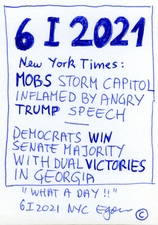 6 I 2021
New York Times:
MOBS STORM CAPITOL
INFLAMED BY ANGRY
TRUMP SPEECH
DEMOCRATS WIN
SENATE MAJORITY
WITH DUAL VICTORIES
IN GEORGIA
"WHAT A DAY!!"
6I2021 NYC Egon ©